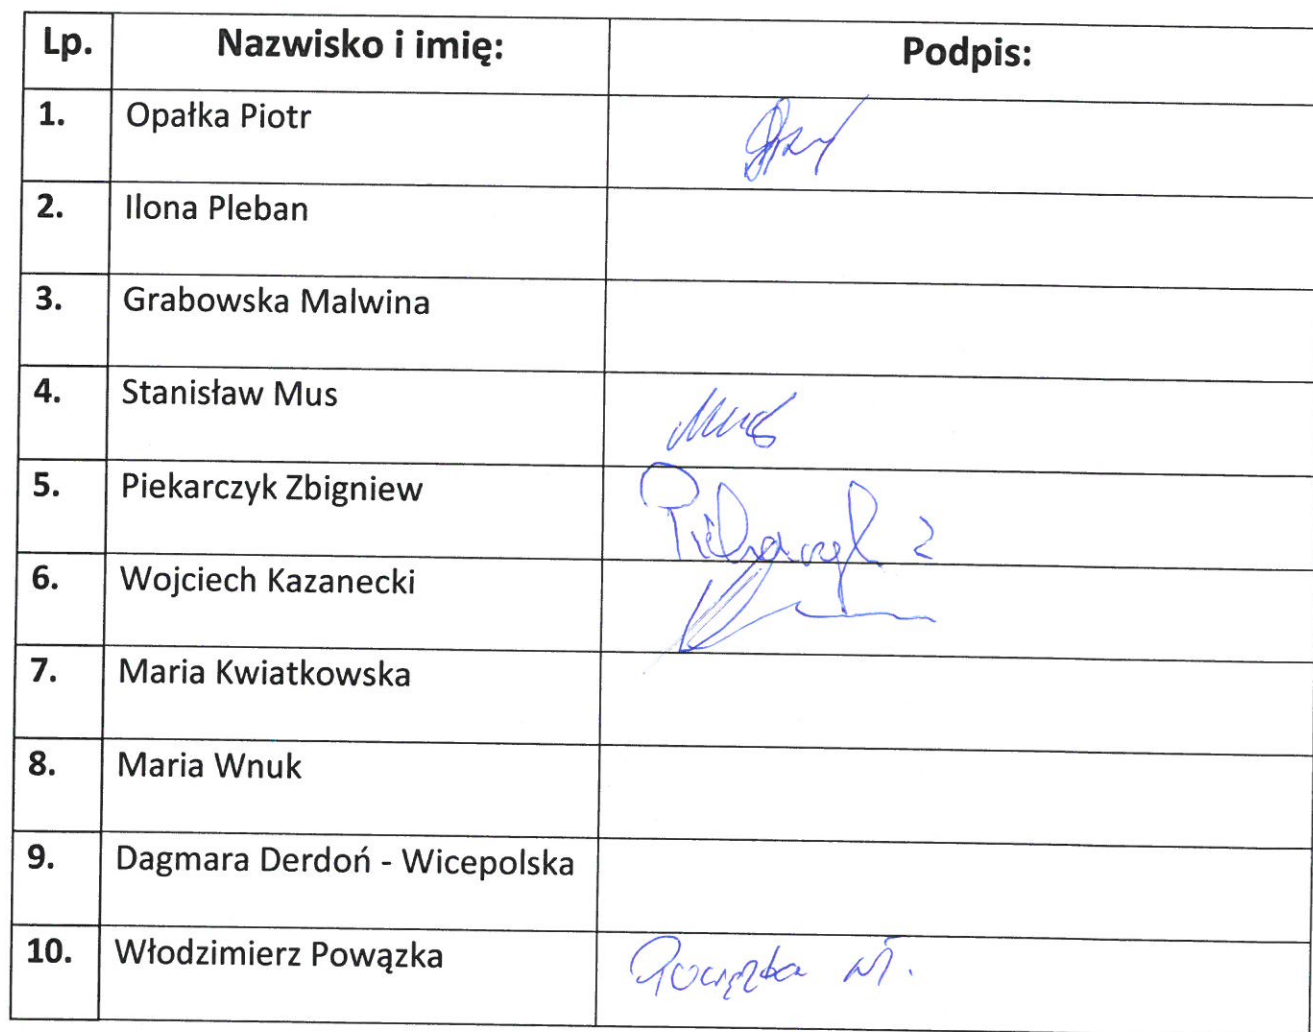 Lp. Nazwisko i imię: Podpis:
1. Opałka Piotr
2. Ilona Pleban
3. Grabowska Malwina
4. Stanisław Mus Mus
5. Piekarczyk Zbigniew Piekarczyk Z
6. Wojciech Kazanecki
7. Maria Kwiatkowska
8. Maria Wnuk
9. Dagmara Derdoń - Wicepolska
10. Włodzimierz Powązka Powązka Wł.